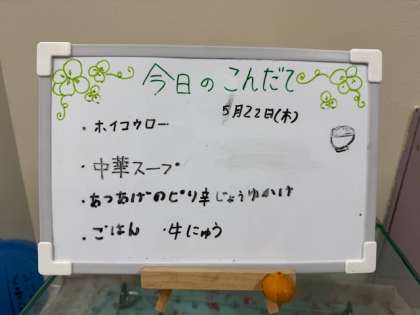 今日のこんだて
5月22日(木)
・ホイコウロー
・中華スープ
・あつあげのピリ辛じょうゆかけ
・ごはん ・牛にゅう